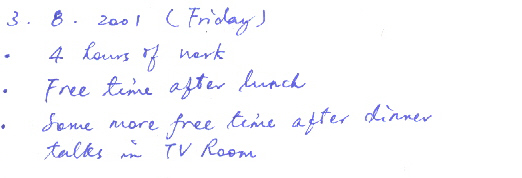 3. 8. 2001 (Friday)
• 4 hours of work
• Free time after lunch
• Some more free time after dinner
talks in TV Room